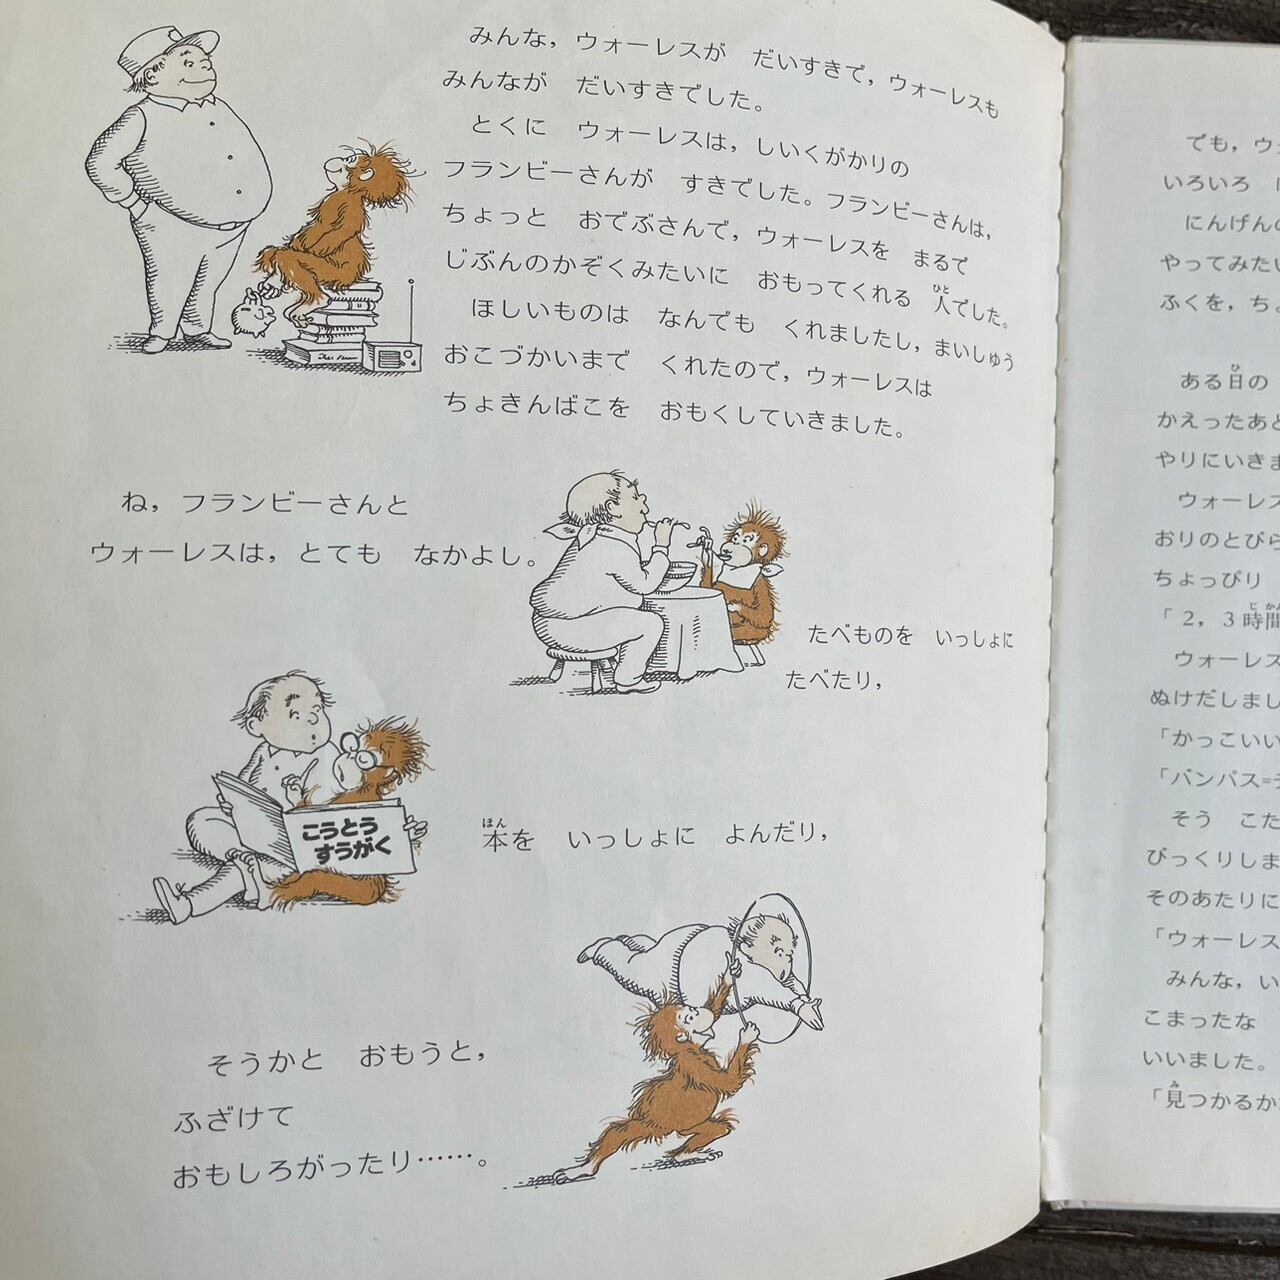 みんな，ウォーレスが　だいすきで，ウォーレスも
みんなが　だいすきでした。
とくに　ウォーレスは，しいくがかりの
フランビーさんが　すきでした。フランビーさんは，
ちょっと　おでぶさんで，ウォーレスを　まるで
じぶんのかぞくみたいに　おもってくれる　人でした。
ほしいものは　なんでも　くれましたし，まいしゅう
おこづかいまで　くれたので，ウォーレスは
ちょきんばこを　おもくしていきました。
ね，フランビーさんと
ウォーレスは，とても　なかよし。
たべものを　いっしょに
たべたり，
こうとう
すうがく
本を　いっしょに　よんだり，
そうかと　おもうと，
ふざけて
おもしろがったり……。
でも，ウ
いろいろ
にんげんの
やってみたい
ふくを，ち
ある日の
かえったあと
やりにいきま
ウォーレス
おりのとびら
ちょっぴり
「2，3時間
ウォーレス
ぬけだしまし
「かっこいい
「バンパス=
そう　こた
びっくりしま
そのあたりに
「ウォーレス
みんな，い
こまったな
いいました。
「見つかるか